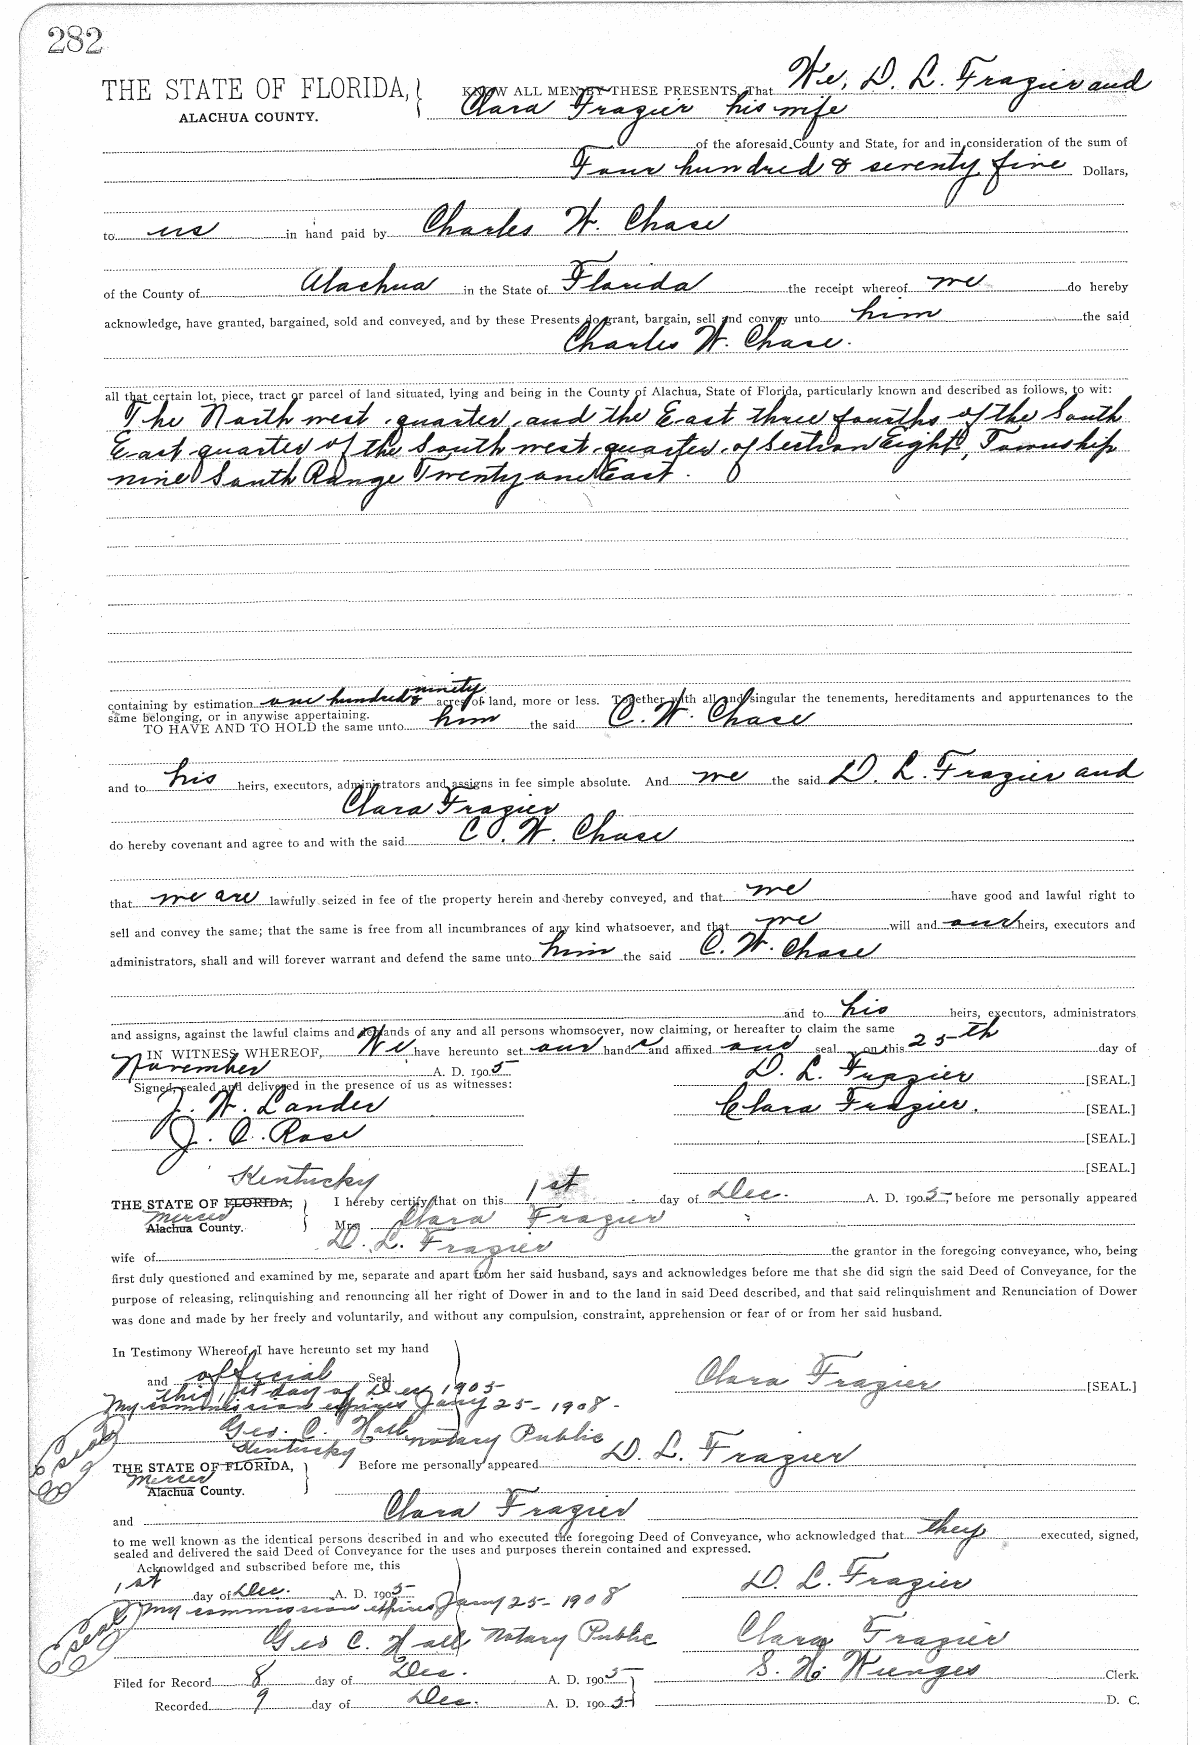 282
THE STATE OF FLORIDA, KNOW ALL MEN BY THESE PRESENTS, That We, D. L. Frazier and
ALACHUA COUNTY. Clara Frazier his wife
of the aforesaid County and State, for and in consideration of the sum of
Four hundred & seventy five Dollars,
to us in hand paid by Charles W. Chase
of the County of Alachua in the State of Florida the receipt whereof we do hereby
acknowledge, have granted, bargained, sold and conveyed, and by these Presents do grant, bargain, sell and convey unto him the said
Charles W. Chase.
all that certain lot, piece, tract or parcel of land situated, lying and being in the County of Alachua, State of Florida, particularly known and described as follows, to wit:
The North west quarter and the East three fourths of the South
East quarter of the South west quarter of Section Eight, Township
nine South Range Twenty one East.
containing by estimation one hundred & ninety acres of land, more or less. Together with all and singular the tenements, hereditaments and appurtenances to the
same belonging, or in anywise appertaining.
TO HAVE AND TO HOLD the same unto him the said C. W. Chase
and to his heirs, executors, administrators and assigns in fee simple absolute. And we the said D. L. Frazier and
Clara Frazier
do hereby covenant and agree to and with the said C. W. Chase
that we are lawfully seized in fee of the property herein and hereby conveyed, and that we have good and lawful right to
sell and convey the same; that the same is free from all incumbrances of any kind whatsoever, and that we will and our heirs, executors and
administrators, shall and will forever warrant and defend the same unto him the said C. W. Chase
and to his heirs, executors, administrators
and assigns, against the lawful claims and demands of any and all persons whomsoever, now claiming, or hereafter to claim the same
IN WITNESS WHEREOF, We have hereunto set our hands and affixed our seals on this 25th day of
November A. D. 1905 D. L. Frazier [SEAL.]
Signed, sealed and delivered in the presence of us as witnesses:
J. W. Lander Clara Frazier. [SEAL.]
J. C. Rose [SEAL.]
[SEAL.]
Kentucky
THE STATE OF FLORIDA, I hereby certify that on this 1st day of Dec. A. D. 1905, before me personally appeared
Mercer
Alachua County. Mrs Clara Frazier
wife of D. L. Frazier the grantor in the foregoing conveyance, who, being
first duly questioned and examined by me, separate and apart from her said husband, says and acknowledges before me that she did sign the said Deed of Conveyance, for the
purpose of releasing, relinquishing and renouncing all her right of Dower in and to the land in said Deed described, and that said relinquishment and Renunciation of Dower
was done and made by her freely and voluntarily, and without any compulsion, constraint, apprehension or fear of or from her said husband.
In Testimony Whereof, I have hereunto set my hand
and official Seal Clara Frazier [SEAL.]
this 1st day of Dec 1905
My commission expires Jany 25- 1908-
Geo. C. Hall notary Public
Seal
Kentucky
THE STATE OF FLORIDA, Before me personally appeared D. L. Frazier
Mercer
Alachua County.
and Clara Frazier
to me well known as the identical persons described in and who executed the foregoing Deed of Conveyance, who acknowledged that they executed, signed,
sealed and delivered the said Deed of Conveyance for the uses and purposes therein contained and expressed.
Acknowldged and subscribed before me, this
1st day of Dec. A. D. 1905- D. L. Frazier
My commission expires Jany 25- 1908
Seal Geo C. Hall Notary Public Clara Frazier
Filed for Record 8 day of Dec. A. D. 1905 S. H. Wienges Clerk.
Recorded 9 day of Dec. A. D. 1905 D. C.